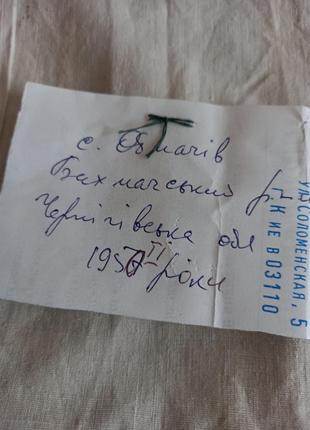 с. Обмачів
Бахмачський р-н
Чернігівська обл
1950ті роки
УЛ. СОЛОМЕНСКАЯ, 5
Г. КИЕВ 03110